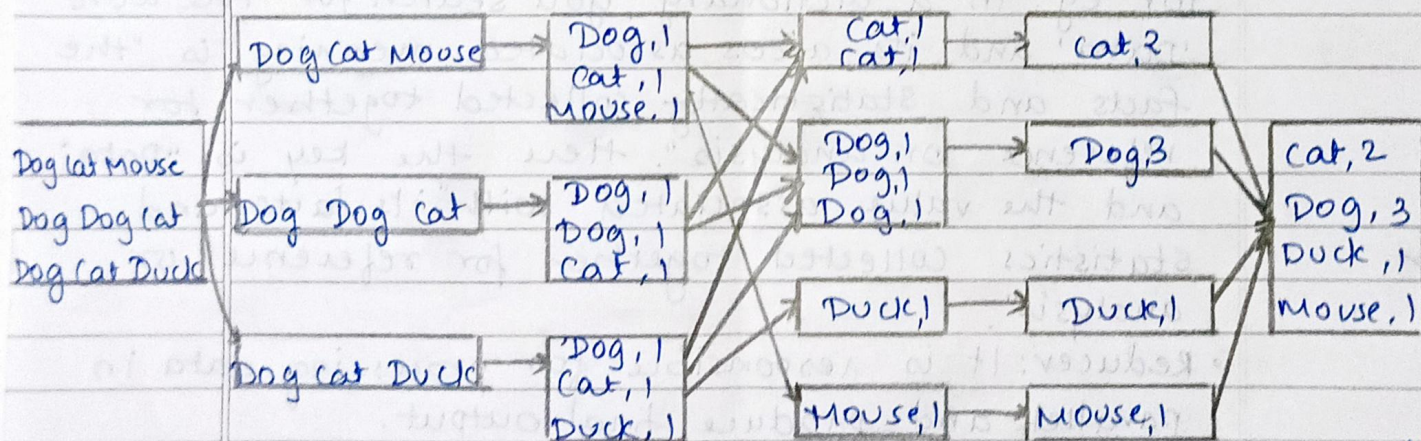 Dog Cat Mouse
Dog Dog Cat
Dog Cat Duck
Dog Cat Mouse
Dog Dog Cat
Dog Cat Duck
Dog, 1
Cat, 1
Mouse, 1
Dog, 1
Dog, 1
Cat, 1
Dog, 1
Cat, 1
Duck, 1
Cat, 1
Cat, 1
Dog, 1
Dog, 1
Dog, 1
Duck, 1
Mouse, 1
Cat, 2
Dog, 3
Duck, 1
Mouse, 1
Cat, 2
Dog, 3
Duck, 1
Mouse, 1